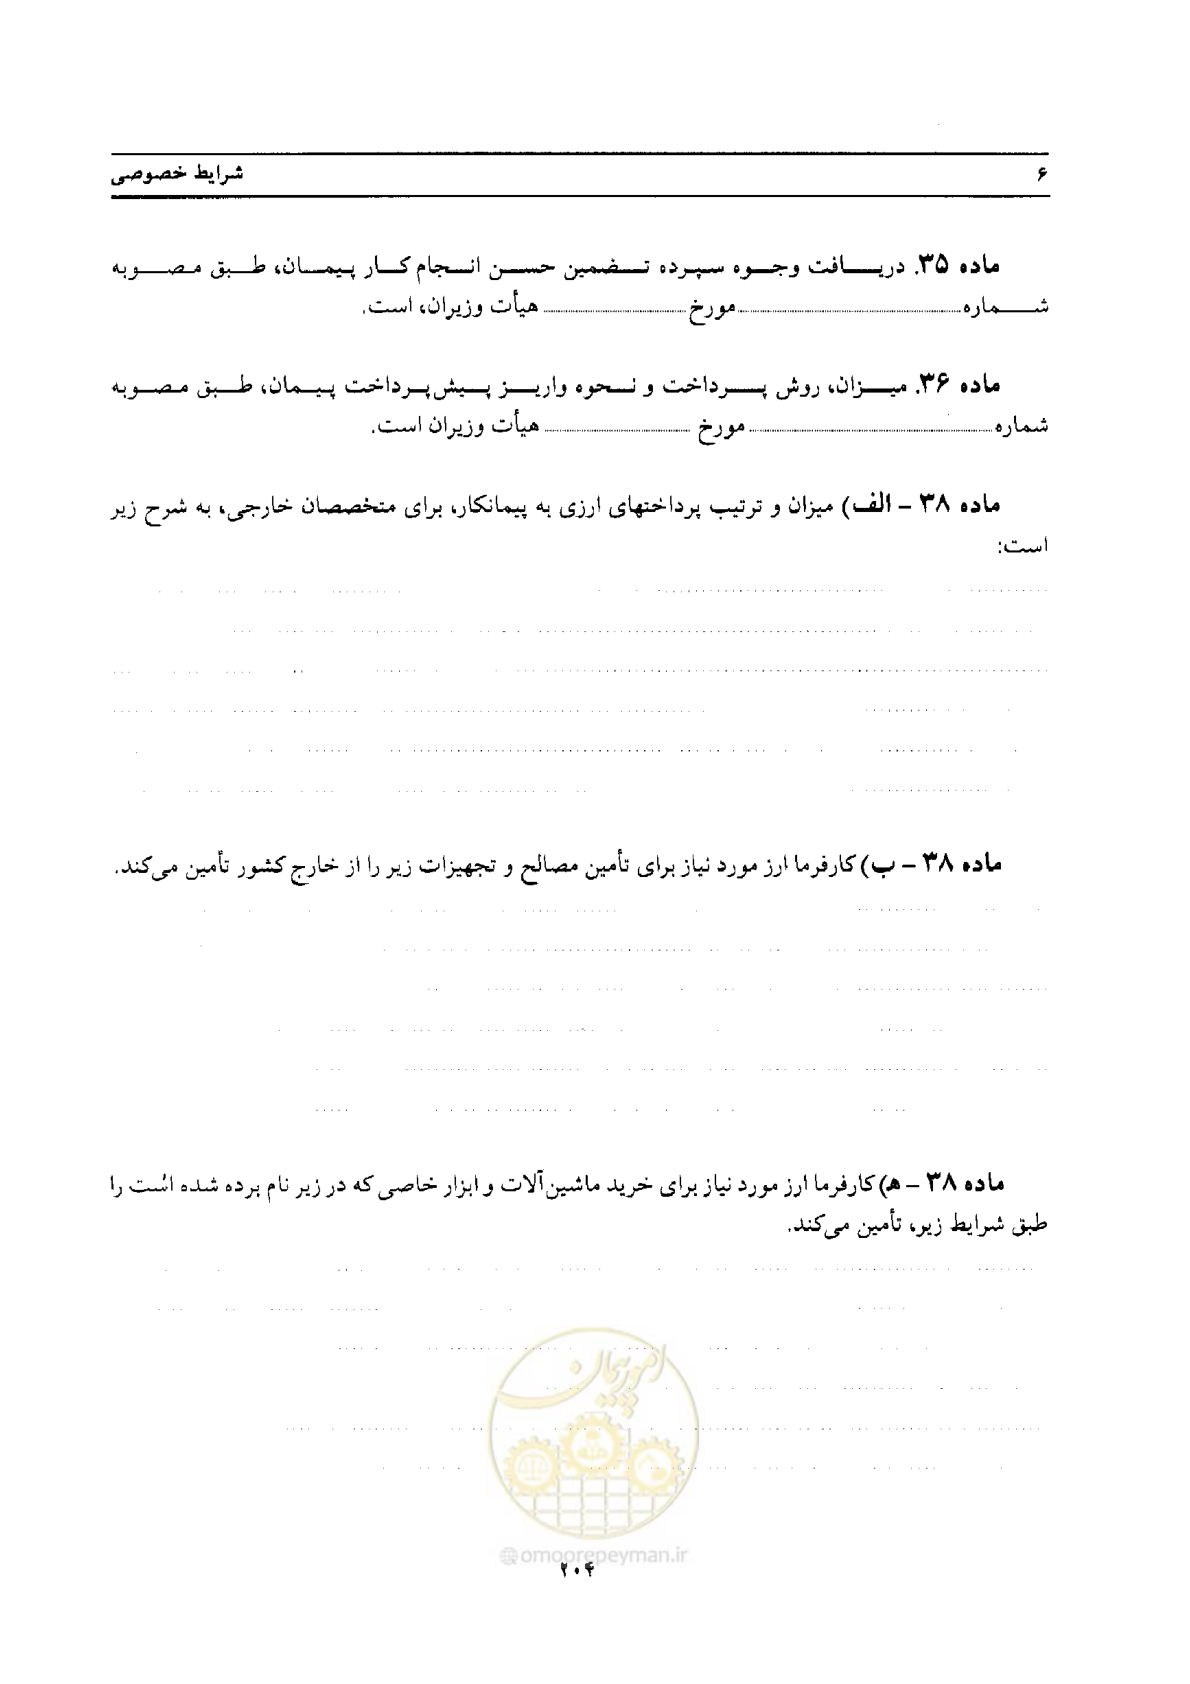 ۶ شرایط خصوصی
ماده ۳۵. دریافت وجوه سپرده تضمین حسن انجام کار پیمان، طبق مصوبه
شماره ........ مورخ ........ هیأت وزیران، است.
ماده ۳۶. میزان، روش پرداخت و نحوه واریز پیش‌پرداخت پیمان، طبق مصوبه
شماره ........ مورخ ........ هیأت وزیران است.
ماده ۳۸ – الف) میزان و ترتیب پرداختهای ارزی به پیمانکار، برای متخصصان خارجی، به شرح زیر
است:
ماده ۳۸ – ب) کارفرما ارز مورد نیاز برای تأمین مصالح و تجهیزات زیر را از خارج کشور تأمین می‌کند.
ماده ۳۸ – ه) کارفرما ارز مورد نیاز برای خرید ماشین‌آلات و ابزار خاصی که در زیر نام برده شده است را
طبق شرایط زیر، تأمین می‌کند.
امور پیمان
@omoorepeyman.ir
۲۰۴